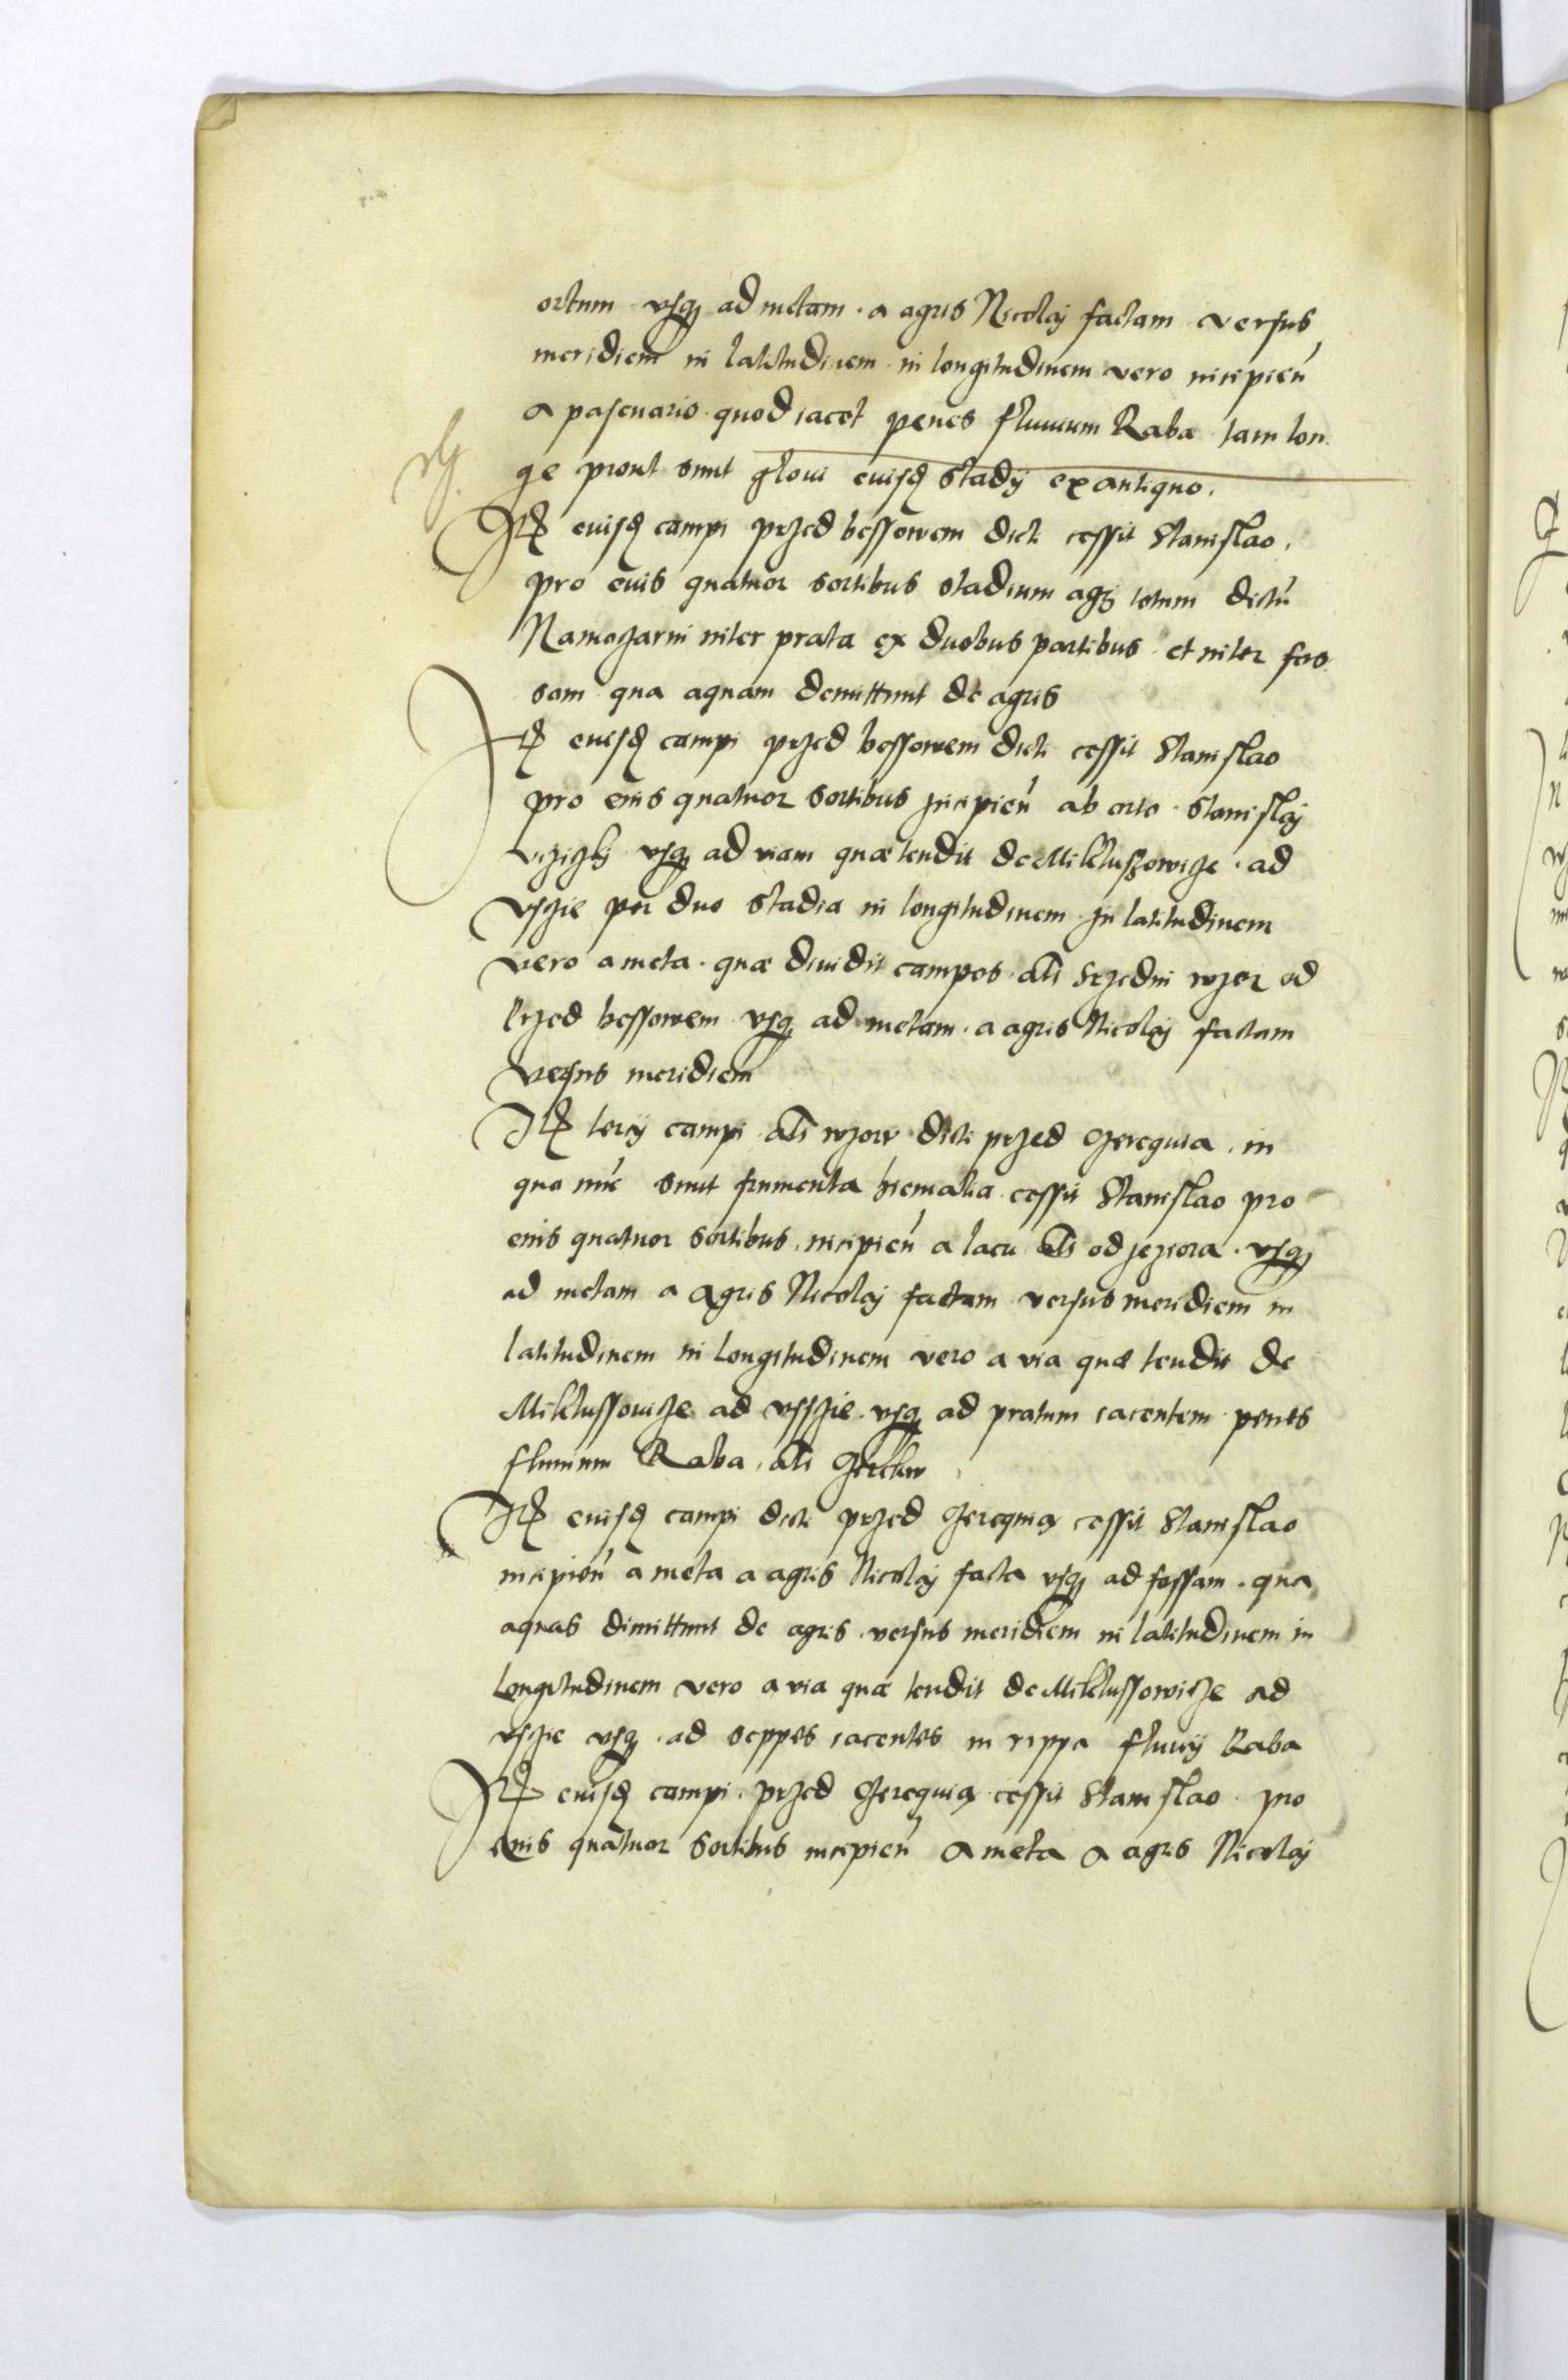 ortum vsq ad metam a agris Nicolaj factam versus
meridiem in latitudinem in longitudinem vero incipien
a pascuario quod iacet penes fluuium Raba tam lon
ge prout sunt gloui euisd stadij ex antiquo.
Itē euisd campi przed bessowem dicti cessit Stanislao
pro euis quatuor sortibus stadium agri totum dictū
Namozarni inter prata ex duobus partibus et inter fos
sam qua aquam demittunt de agris
Itē euisd campi przed bessowem dicti cessit Stanislao
pro eius quatuor sortibus incipien ab orto Stanislaj
vsq ad viam quæ tendit de Mikluszowicze ad
Vsczie per duo stadia in longitudinem in latitudinem
vero a meta quæ diuidit campos als srzedni wzor od
Przed bessowem vsq ad metam a agris Nicolaj factam
versus meridiem
Itē tercij campi als wzorr dicti przed Czeregwia in
quo nūc sunt frumenta hiemalia cessit Stanislao pro
eius quatuor sortibus incipien a lacu als od jeziora vsq
ad metam a agris Nicolaj factam versus meridiem in
latitudinem in longitudinem vero a via quæ tendit de
Miklussouicze ad vssczie vsq ad pratum iacentem penes
fluuium Raba als
Itē euisd campi dicti przed Czeregwia cessit Stanislao
incipien a meta a agris Nicolaj facta vsq ad fossam qua
aquas dimittunt de agris versus meridiem in latitudinem in
longitudinem vero a via quæ tendit de Miklussowicze ad
vsczie vsq ad seppes iacentes in rippa fluuij Raba
Itē euisd campi przed Czeregwia cessit Stanislao pro
euis quatuor sortibus incipien a meta a agris Nicolaj